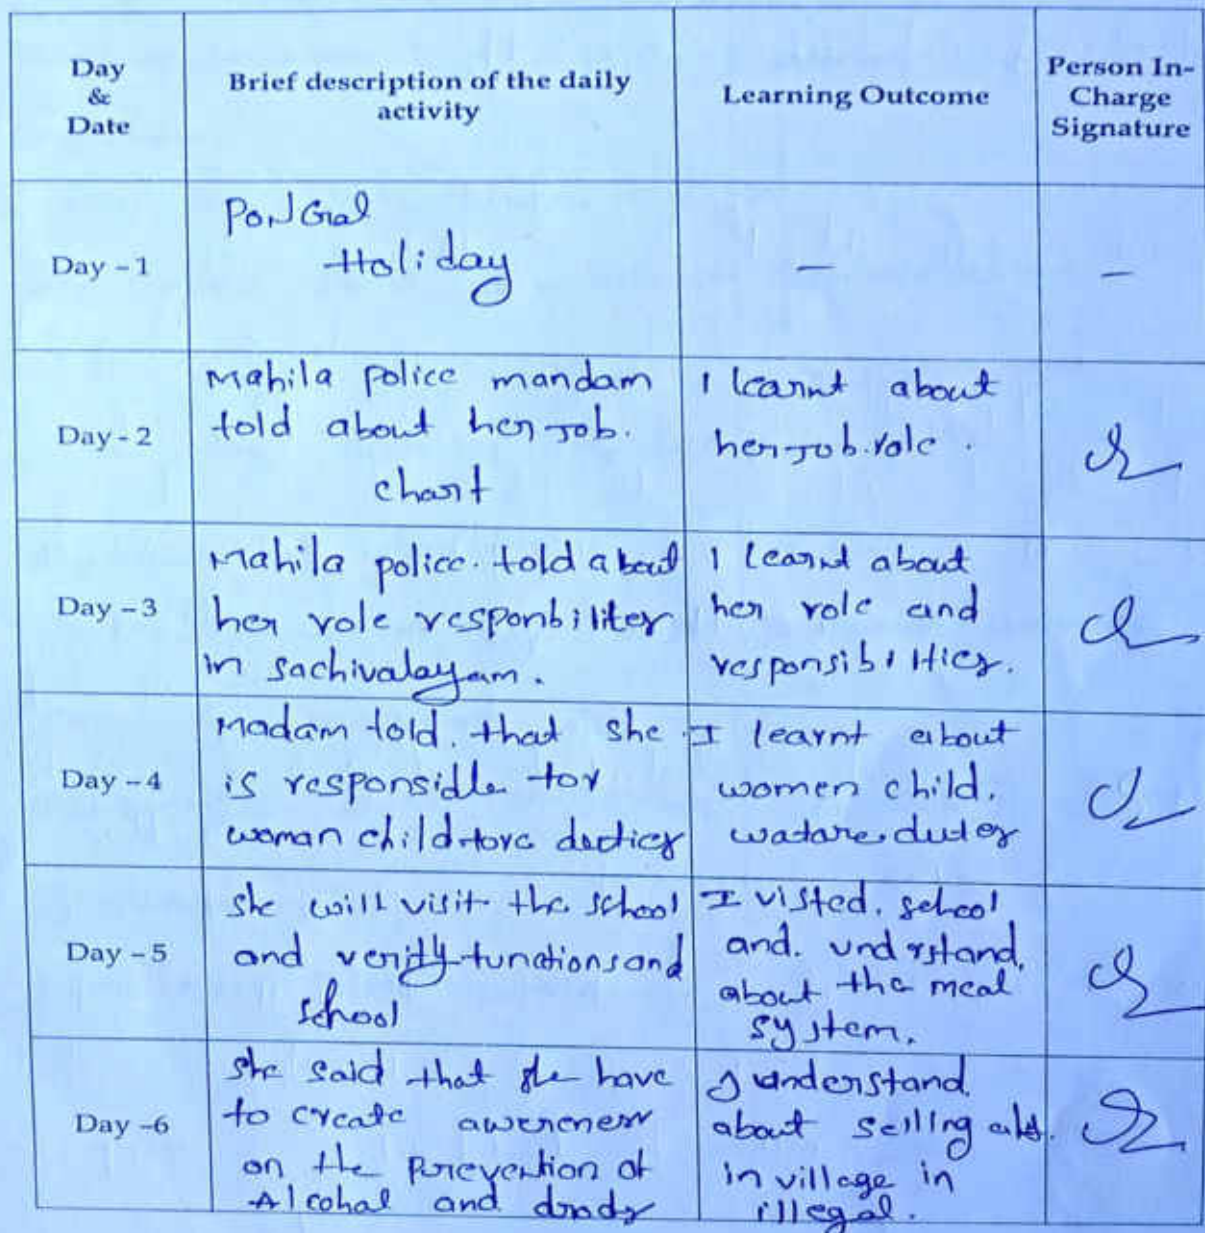 Day
&
Date
Brief description of the daily
activity
Learning Outcome
Person In-
Charge
Signature
Day - 1
PonGal
Holiday
-
-
Day - 2
Mahila police mandam
told about her Job.
chart
I learnt about
her Job.role.
Day - 3
Mahila police. told about
her role responbilites
in sachivalayam.
I learnt about
her role and
responsibilities.
Day - 4
Madam told. that she
is responsidle for
woman child
I learnt about
women child.
Day - 5
she will visit the school
and verify functions and
school
I visted. school
and. undrstand.
about the meal
system.
Day -6
she said that she have
to create awerener
on the Prevention of
Alcohal and
I understand.
about selling
in village in
illegal.